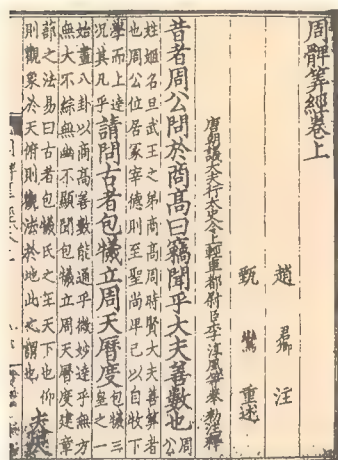 周髀算經卷上
趙君卿注
甄鸞重述
唐朝議大夫行太史令上輕車都尉臣李淳風等奉勅注釋
昔者周公問於商高曰竊聞乎大夫善數也周公
姓姬名旦武王之弟商高周時賢大夫善算者
也周公位居冢宰德則至聖尚卑己以自牧下
學而上達況其凡乎請問古者包犧立周天曆度包犧三皇之一
始畫八卦以商高善數能通乎微妙達乎無方
無大不綜無幽不顯聞包犧立周天曆度建章
蔀之法易曰古者包犧氏之王天下也仰
則觀象於天俯則觀法於地此之謂也夫天